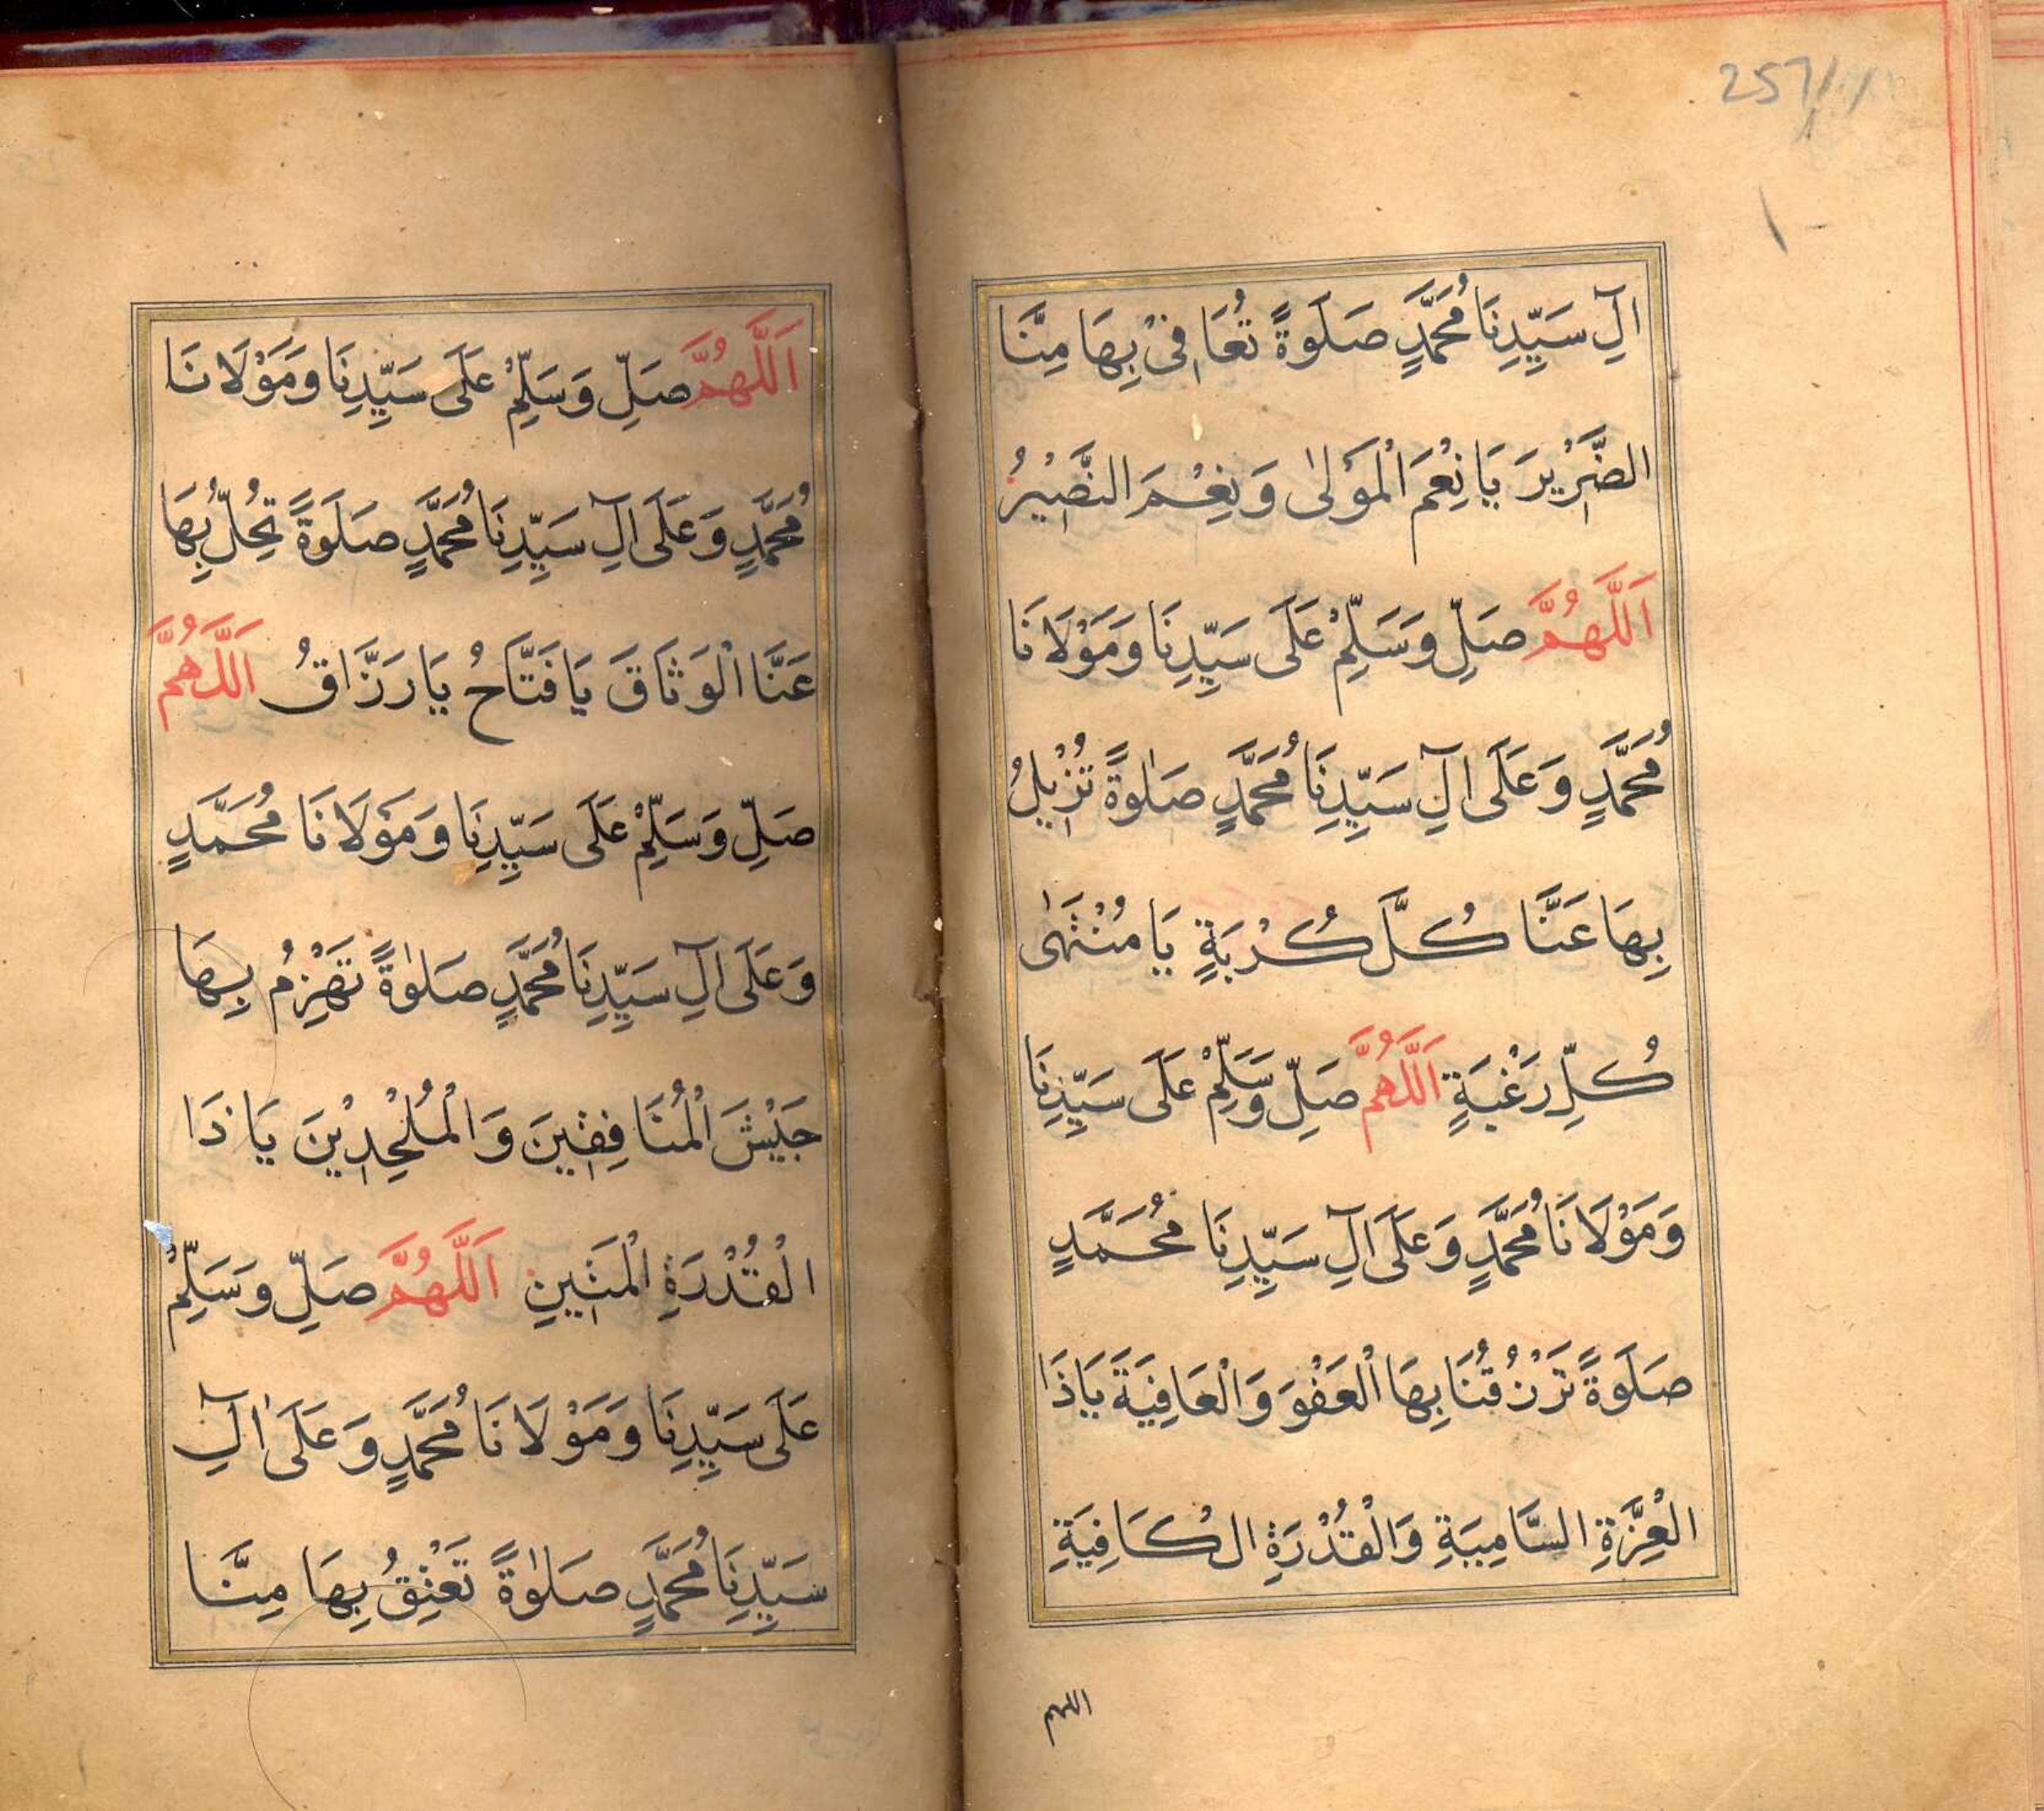 257/1
١
اٰلِ سَيِّدِنَا مُحَمَّدٍ صَلَوةً تُعَافِیْ بِهَا مِنَّا
الضَّرِيْرَ يَا نِعْمَ الْمَوْلٰى وَ نِعْمَ النَّصِيْرُ
اَللّٰهُمَّ صَلِّ وَسَلِّمْ عَلَى سَيِّدِنَا وَمَوْلَانَا
مُحَمَّدٍ وَعَلَى اٰلِ سَيِّدِنَا مُحَمَّدٍ صَلٰوةً تُزِيْلُ
بِهَا عَنَّا كُلَّ كُرْبَةٍ يَا مُنْتَهٰى
كُلِّ رَغْبَةٍ اَللّٰهُمَّ صَلِّ وَسَلِّمْ عَلَى سَيِّدِنَا
وَمَوْلَانَا مُحَمَّدٍ وَعَلَى اٰلِ سَيِّدِنَا مُحَمَّدٍ
صَلَوةً تَرْزُقُنَا بِهَا الْعَفْوَ وَالْعَافِيَةَ يَا ذَا
الْعِزَّةِ السَّامِيَةِ وَالْقُدْرَةِ الْكَافِيَةِ
اللهم
اَللّٰهُمَّ صَلِّ وَسَلِّمْ عَلَى سَيِّدِنَا وَمَوْلَانَا
مُحَمَّدٍ وَعَلَى اٰلِ سَيِّدِنَا مُحَمَّدٍ صَلَوةً تَحُلُّ بِهَا
عَنَّا الْوَثَاقَ يَا فَتَّاحُ يَا رَزَّاقُ اَللّٰهُمَّ
صَلِّ وَسَلِّمْ عَلَى سَيِّدِنَا وَمَوْلَانَا مُحَمَّدٍ
وَعَلَى اٰلِ سَيِّدِنَا مُحَمَّدٍ صَلٰوةً تَهْزِمُ بِهَا
جَيْشَ الْمُنَافِقِيْنَ وَالْمُلْحِدِيْنَ يَا ذَا
الْقُدْرَةِ الْمَتِيْنِ اَللّٰهُمَّ صَلِّ وَسَلِّمْ
عَلَى سَيِّدِنَا وَمَوْلَانَا مُحَمَّدٍ وَعَلَى اٰلِ
سَيِّدِنَا مُحَمَّدٍ صَلٰوةً تَعْتِقُ بِهَا مِنَّا